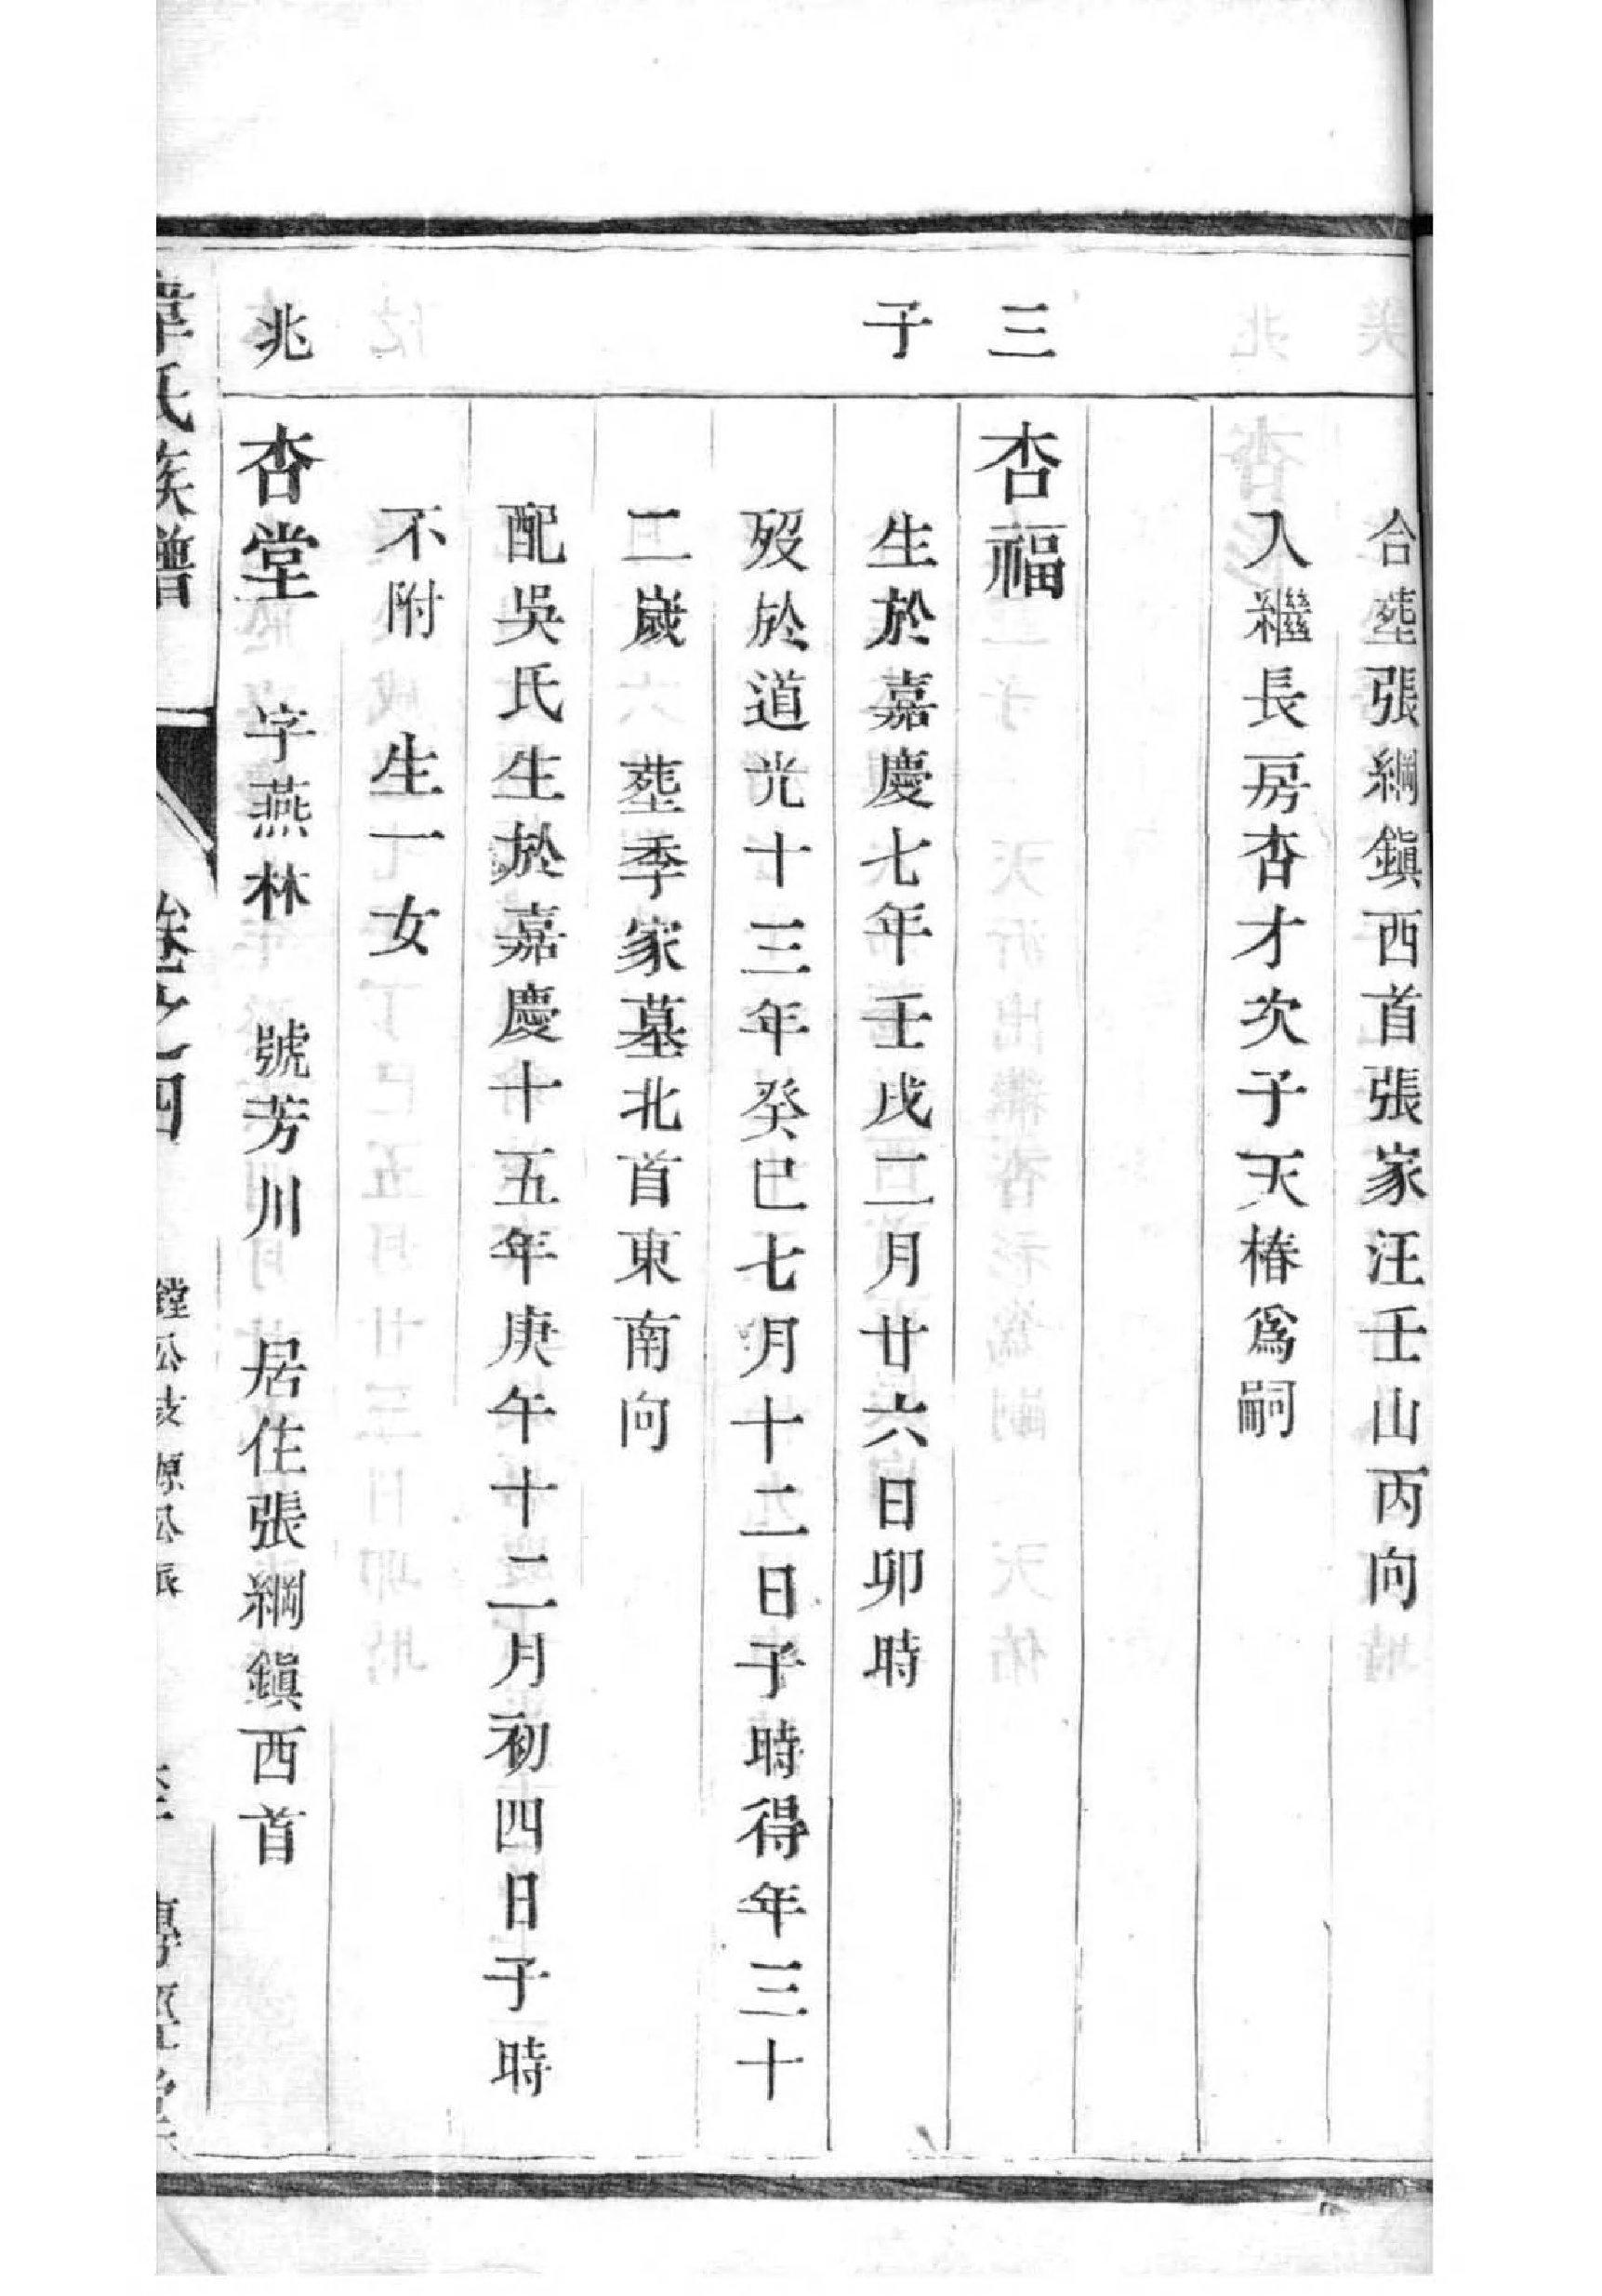 合塟張綱鎭西首張家汪壬山丙向
入繼長房杏才次子天椿爲嗣
三
杏福
子
生於嘉慶七年壬戌二月廿六日卯時
歿於道光十三年癸巳七月十二日子時得年三十
二歲 塟季家墓北首東南向
配吳氏生於嘉慶十五年庚午十二月初四日子時
不附 生一女
兆
杏堂 字燕林 號芳川 居住張綱鎭西首
氏族譜 卷之四 鏜公支源公派